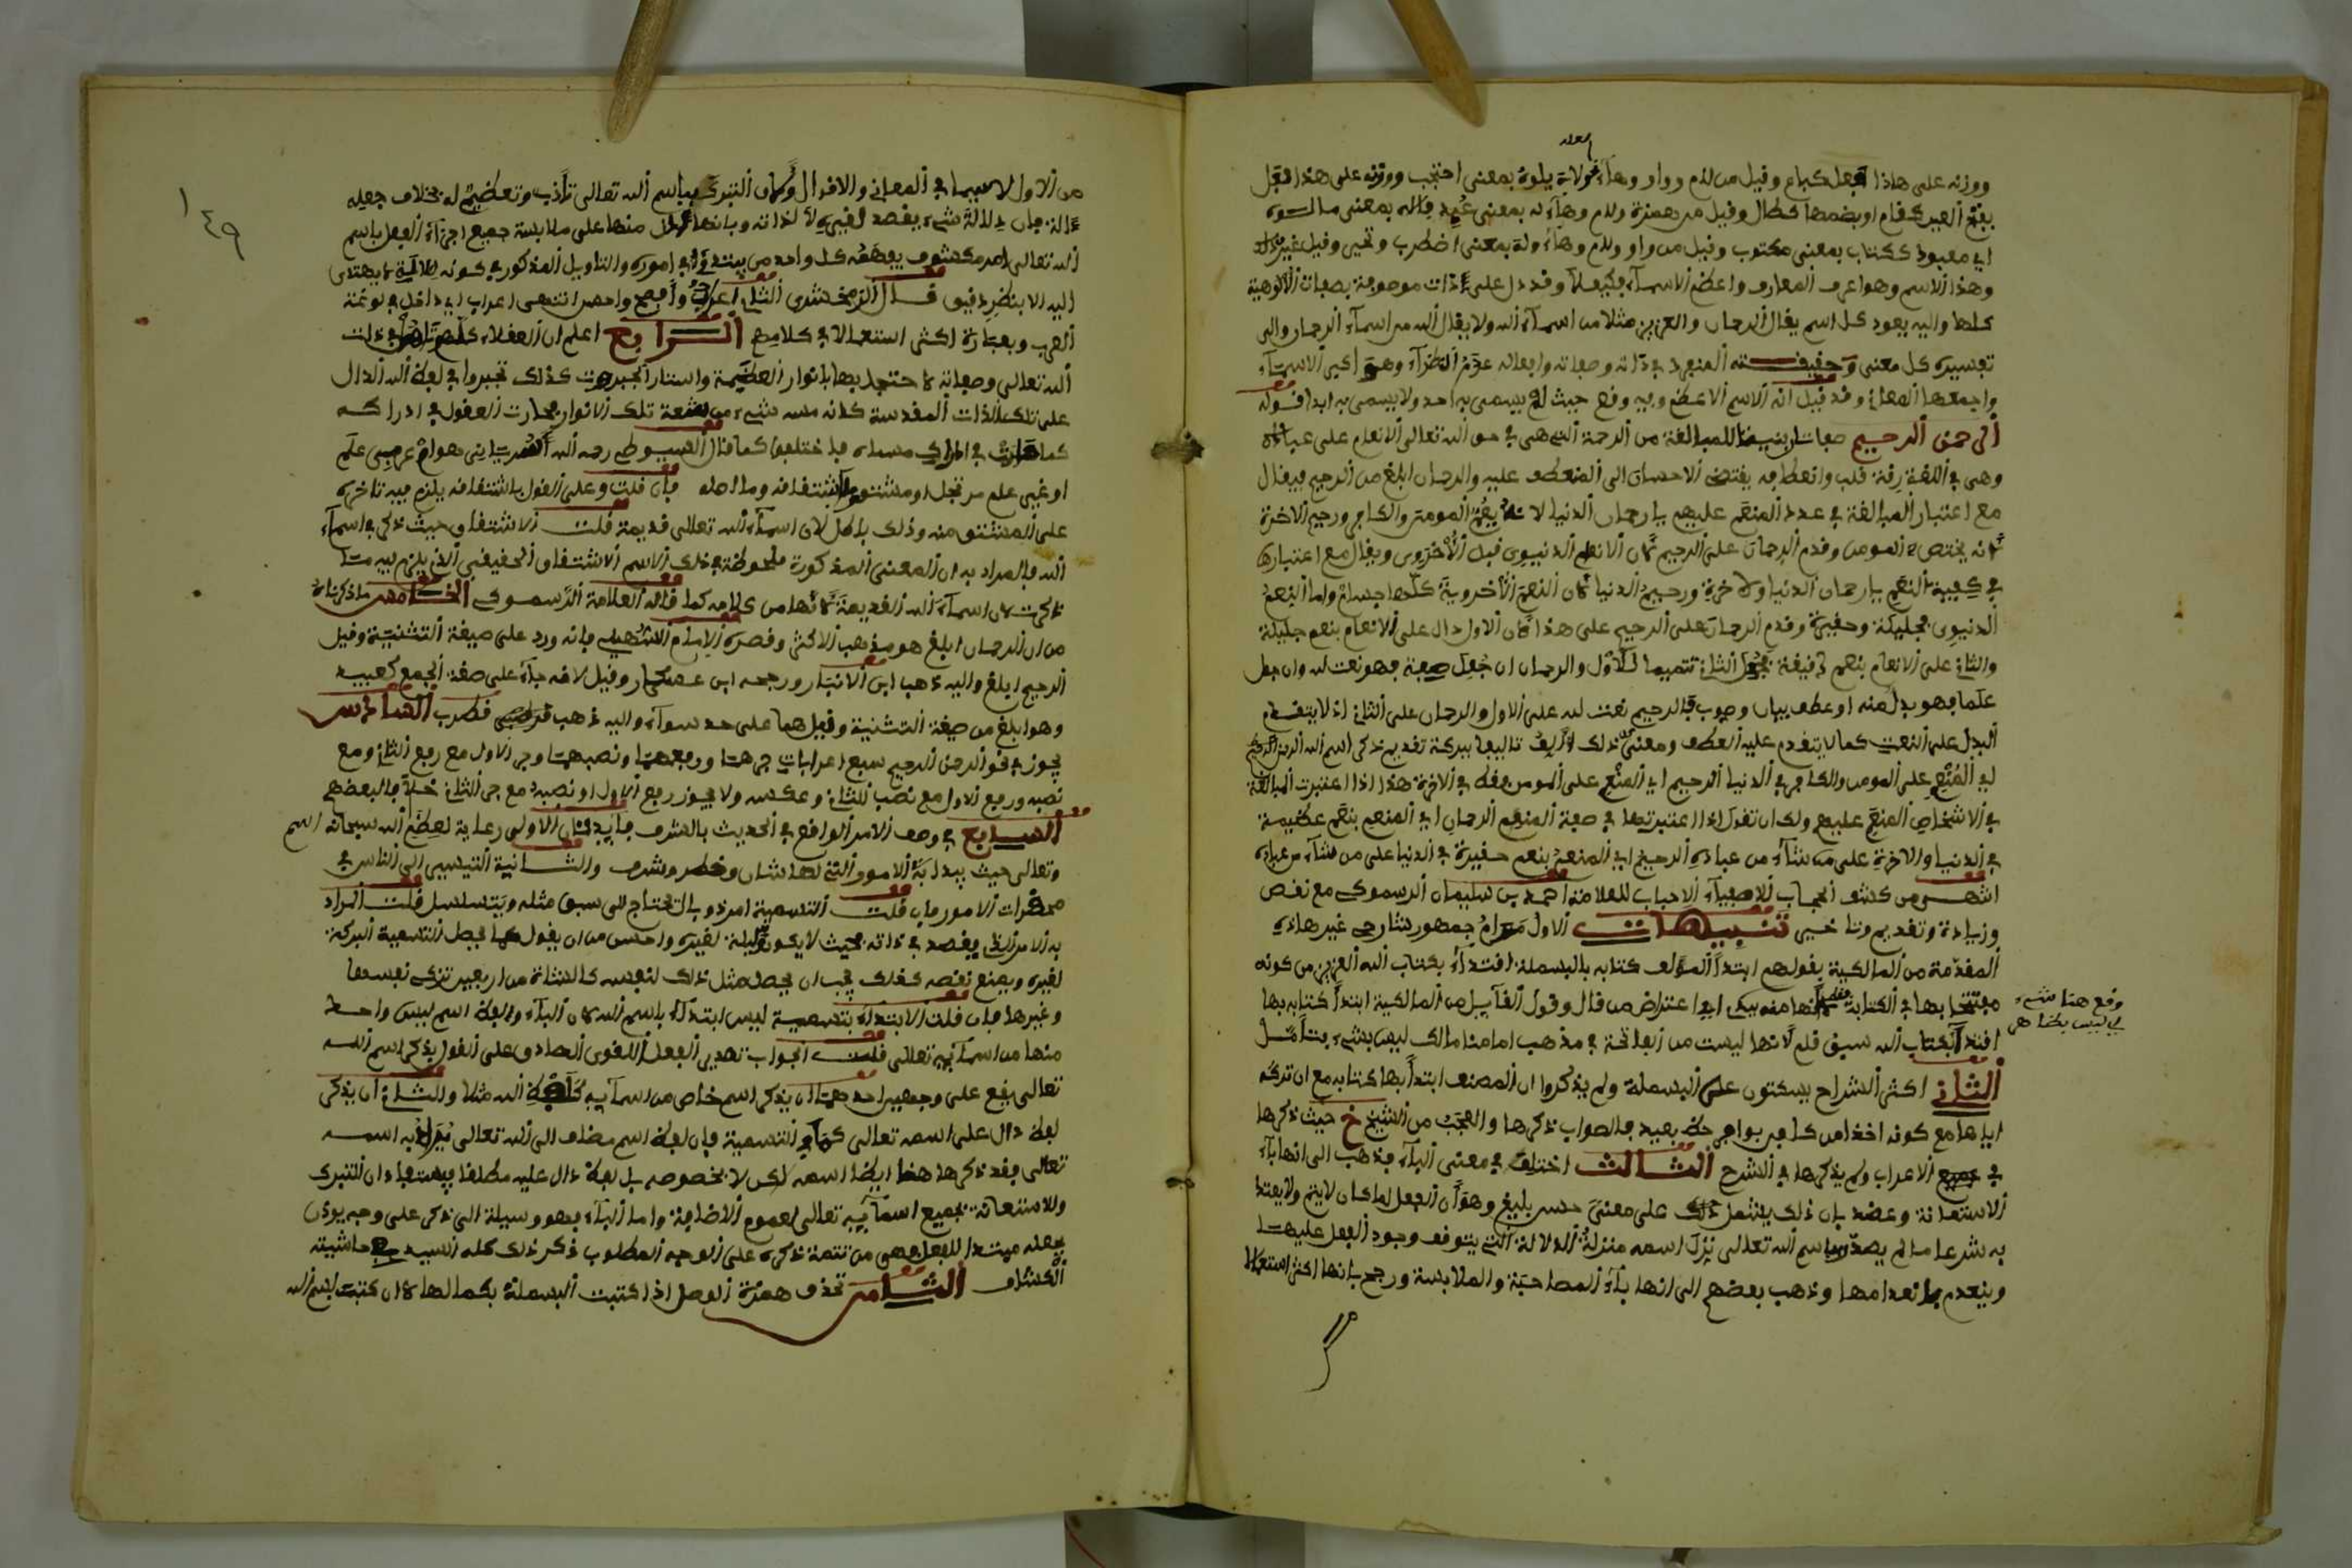 ووزنه على هاذا فعل كباع وقيل من لام وواو وهاء لاه يلوه بمعنى احتجب ووزنه على هذا فعل
بفتح العين كقام او بضمها كطال وقيل من همزة ولام وهاء اله بمعنى عبد فإله بمعنى مالوه
اي معبود ككتاب بمعنى مكتوب وقيل من واو ولام وهاء وله بمعنى اضطرب وتحير وقيل غير ذلك
وهذا الاسم وهو اعرف المعارف واعظم الاسماء وقد دل على ذات موصوفة بصفات الالوهية
كلها واليه يعود كل اسم يقال الرحمان والعزيز مثلا من اسماء الله ولا يقال الله من اسماء الرحمان والى
تفسيره كل معنى وحقيقته المنفرد في ذاته وصفاته وافعاله عن النظراء وهو اكبر الاسماء
واجمعها للمعاني وقد قيل انه الاسم الاعظم وبه وقع حيث لم يسمى به احد ولا يسمى به ابدا قوله
الرحمن الرحيم صفتان بنيتا للمبالغة من الرحمة التي هي في حق الله تعالى الانعام على عباده
وهي في اللغة رقة قلب وانعطافه يقتضي الاحسان الى المنعطف عليه والرحمان ابلغ من الرحيم فيقال
مع اعتبار المبالغة في عدد المنعم عليهم يا رحمان الدنيا لانه يعم المومن والكافر ورحيم الاخرة
لانه يختص بالمومن وقدم الرحمان على الرحيم لان الانعام الدنيوي قبل الاخروي ويقال مع اعتبارها
في كيفية النعم يا رحمان الدنيا والاخرة ورحيم الدنيا لان النعم الاخروية كلها جسام واما النعم
الدنيوي فجليلة وحقيرة وقدم الرحمان على الرحيم على هذا لان الاول دال على الانعام بنعم جليلة
والثاني على الانعام بنعم دقيقة فجعل الثاني تتميما للاول والرحمان ان جعل صفة فهو نعت لله وان جعل
علما فهو بدل منه او عطف بيان وصوب فالرحيم نعت لله على الاول والرحمان على الثاني اذ لا يتقدم
البدل على النعت كما لا يتقدم عليه العطف ومعنى ذلك تاليفا ببركة تقديم ذكر اسم الله الرحمن الرحيم
اي المنعم على المومن والكافر في الدنيا الرحيم اي المنعم على المومن فقط في الاخرة هذا اذا اعتبرت المبالغة
في الاشخاص المنعم عليهم ولك ان تقول اذا اعتبرتها في صفة المنعم الرحمان اي المنعم بنعم عظيمة
في الدنيا والاخرة على من شاء من عباده الرحيم اي المنعم بنعم حقيرة في الدنيا على من شاء من عباده
انتهى من كشف الحجاب للاصفياء والاحباب للعلامة احمد بن سليمان الرسموكي مع نقص
وزيادة وتقديم وتاخير تنبيهات الاول مرام جمهور شارحي غير هاذه
المقدمة من المالكية بقولهم ابتدأ المؤلف كتابه بالبسملة اقتداء بكتاب الله العزيز من كونه
مفتتحا بها في الكتابة لانها منه ففي ايها اعتراض من قال وقول القائل من المالكية ابتدأ كتابه بها
اقتداء بكتاب الله سبق قلم لانها ليست من الفاتحة في مذهب امامنا مالك ليس بشيء يتأمل
الثاني اكثر الشراح يسكتون على البسملة ولم يذكروا ان المصنف ابتدأ بها كتابه مع ان تركه
اياها مع كونه اخذا من كل فن بوافر حظ بعيد فالصواب ذكرها والعجب من الشيخ خ حيث ذكرها
في الاعراب ولم يذكرها في الشرح الثالث اختلف في معنى الباء فذهب الى انها باء
الاستعانة وعضد بان ذلك يشتمل على معنى حسن بليغ وهو ان الفعل لما كان لا يتم ولا يعتد
به شرعا ما لم يصدر باسم الله تعالى نزل اسمه منزلة الدلالة التي يتوقف وجود الفعل عليها
وينعدم بانعدامها وذهب بعضهم الى انها باء المصاحبة والملابسة ورجح بانها اكثر استعمالا
وقع هنا شيء
ليس بظاهر
١٤٩
من الاول لا سيما في المعاني والاقوال وبان التبرك باسم الله تعالى تأدب وتعظيم له بخلاف جعله
ءالة فان دلالة شيء يقصد لغيره لا لذاته وبانها ادل منها على ملابسة جميع اجزاء الفعل باسم
الله تعالى مكشوف يفهمه كل واحد من يبتدئ في اموره والتاويل المذكور في كونه للآلة لا يهتدى
اليه الا بنظر دقيق قال الزمخشري الثاني اعرب وافصح واحسن انتهى اعراب اي داخل في لغة
العرب وبعبارة اكثر استعمالا في كلامهم الرابع اعلم ان العقلاء كما تاهوا في ذات
الله تعالى وصفاته لاحتجابها بانوار العظمة واستتار الجبروت كذلك تحيروا في لفظ الله الدال
على تلك الذات المقدسة كانه مسه شيء من اشعة تلك الانوار فحارت العقول في ادراكه
كما حارت في ادراك مسماه فاختلفوا كما قال السيوطي رحمه الله اسرياني هو ام عربي علم
او غير علم مرتجل او مشتق وما اشتقاقه وما اصله فان قلت وعلى القول باشتقاقه يلزم فيه تاخره
على المشتق منه وذلك باطل لان اسماء الله تعالى قديمة قلت الاشتقاق حيث ذكر في اسماء
الله فالمراد به ان المعنى المذكورة ملحوظة في ذلك الاسم لا الاشتقاق الحقيقي الذي يلزم فيه ما
ذكرت لان اسماء الله القديمة لانها من كلامه كما قاله العلامة الرسموكي الخامس ما ذكرناه
من ان الرحمان ابلغ هو مذهب الاكثر ونصره الامام السهيلي فانه ورد على صيغة التثنية وقيل
الرحيم ابلغ واليه ذهب ابن الانباري ورجحه ابن عسكر وقيل لانه جاء على صفة الجمع كعبيد
وهو ابلغ من صيغة التثنية وقيل هما على حد سواء واليه ذهب قطرب السادس
يجوز في نحو الرحمن الرحيم سبع اعرابات جرهما ورفعهما ونصبهما وجر الاول مع رفع الثاني ومع
نصبه ورفع الاول مع نصب الثاني وعكسه ولا يجوز رفع الاول او نصبه مع جر الثاني خلافا لبعضهم
السابع في وصف الامر الواقع في الحديث بالشرف فايدتان الاولى رعاية لعظم الله سبحانه اسم
وتعالى حيث يبدا به الامور التي لها شان وخطر وشرف والثانية التيسير الى الناس في
محقرات الامور فان قلت التسمية امر ذو بال تحتاج الى سبق مثله ويتسلسل قلت المراد
به الامر الذي يقصد في ذاته بحيث لا يكون وسيلة لغيره واحسن من ان يقول كما يحصل التسمية البركة
لغيره ويمنع نقصه كذلك يجب ان يحصل مثل ذلك لنفسه كالشاة من اربعين تزكي نفسها
وغيرها فان قلت الابتداء بتسمية ليس ابتداء باسم الله لان الباء ولفظ اسم ليس واحد
منها من اسمائه تعالى قلت الجواب تصدير الفعل اللغوي الصادق على القول بذكر اسم الله
تعالى يقع على وجهين احدهما ان يذكر اسم خاص من اسمائه كلفظة الله مثلا والثاني ان يذكر
لفظ دال على اسمه تعالى كما في التسمية فان لفظ اسم مضاف الى الله تعالى يراد به اسمه
تعالى فقد ذكرها هنا ايضا اسمه لكن لا بخصوصه بل لفظ دال عليه مطلقا فيستفاد ان التبرك
والاستعانة بجميع اسمائه تعالى لعموم الاضافة واما الباء فهو وسيلة الى ذكر على وجه يوذن
بجعله مبتدا للفعل فهي من تتمة ذكره على الوجه المطلوب ذكر ذلك كله السيد في حاشيته
الكشاف الثامن تحذف همزة الوصل اذا كتبت البسملة بكمالها لا ان كتبت بسم الله